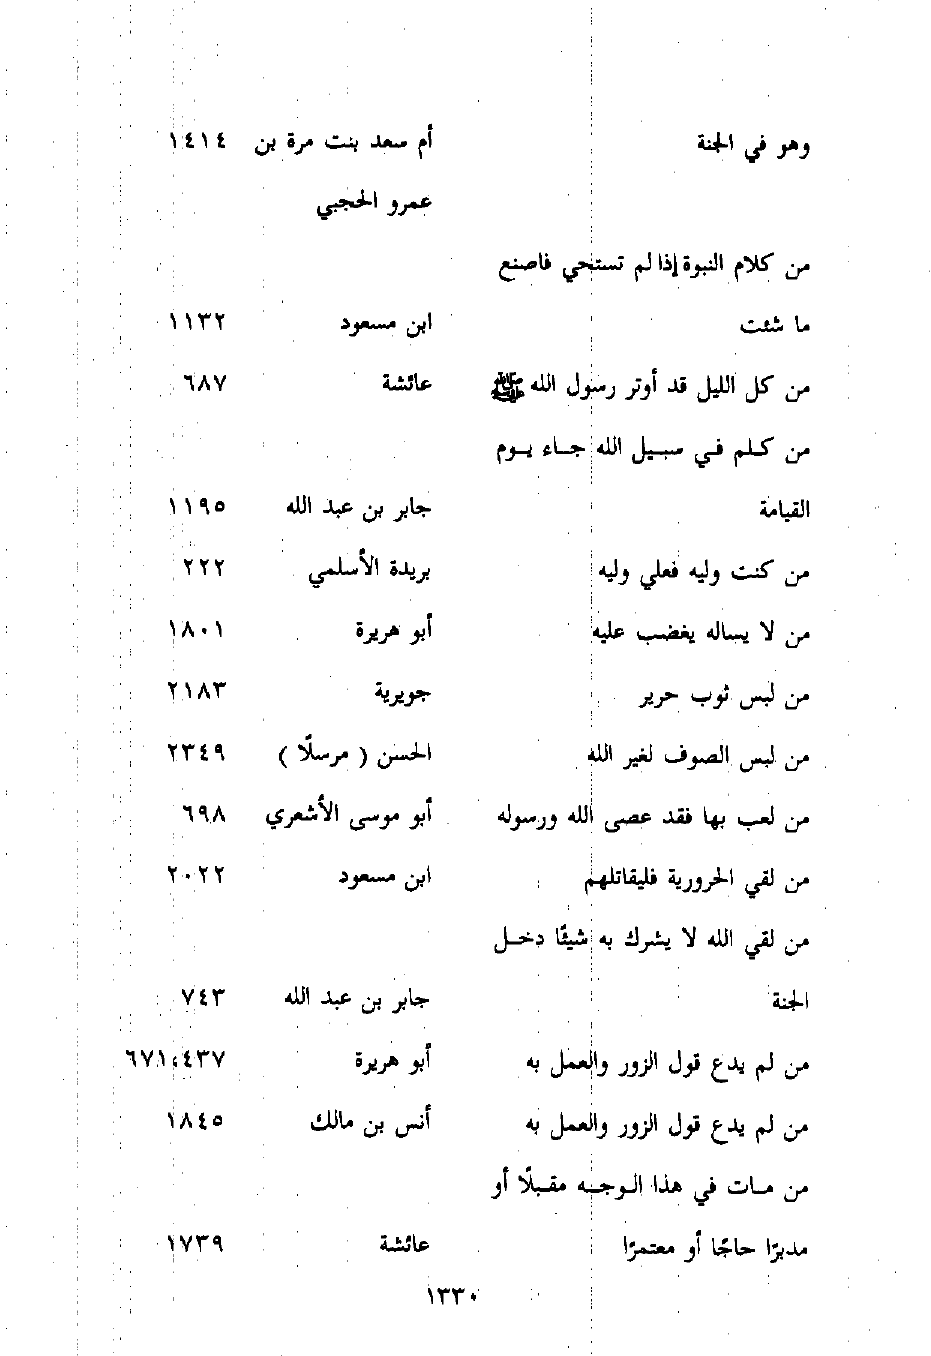 وهو في الجنة أم سعد بنت مرة بن ١٤١٤
عمرو الحجبي
من كلام النبوة إذا لم تستحي فاصنع
ما شئت ابن مسعود ١١٣٢
من كل الليل قد أوتر رسول الله ﷺ عائشة ٦٨٧
من كـلـم فـي سبـيـل الله جـاء يـوم
القيامة جابر بن عبد الله ١١٩٥
من كنت وليه فعلي وليه بريدة الأسلمي ٢٢٢
من لا يساله يغضب عليه أبو هريرة ١٨٠١
من لبس ثوب حرير جويرية ٢١٨٣
من لبس الصوف لغير الله الحسن ( مرسلًا ) ٢٣٤٩
من لعب بها فقد عصى الله ورسوله أبو موسى الأشعري ٦٩٨
من لقي الحرورية فليقاتلهم ابن مسعود ٢٠٢٢
من لقي الله لا يشرك به شيئًا دخـل
الجنة جابر بن عبد الله ٧٤٣
من لم يدع قول الزور والعمل به أبو هريرة ٦٧١،٤٣٧
من لم يدع قول الزور والعمل به أنس بن مالك ١٨٤٥
من مـات في هذا الـوجـه مقـبلًا أو
مدبرًا حاجًا أو معتمرًا عائشة ١٧٣٩
١٣٣٠